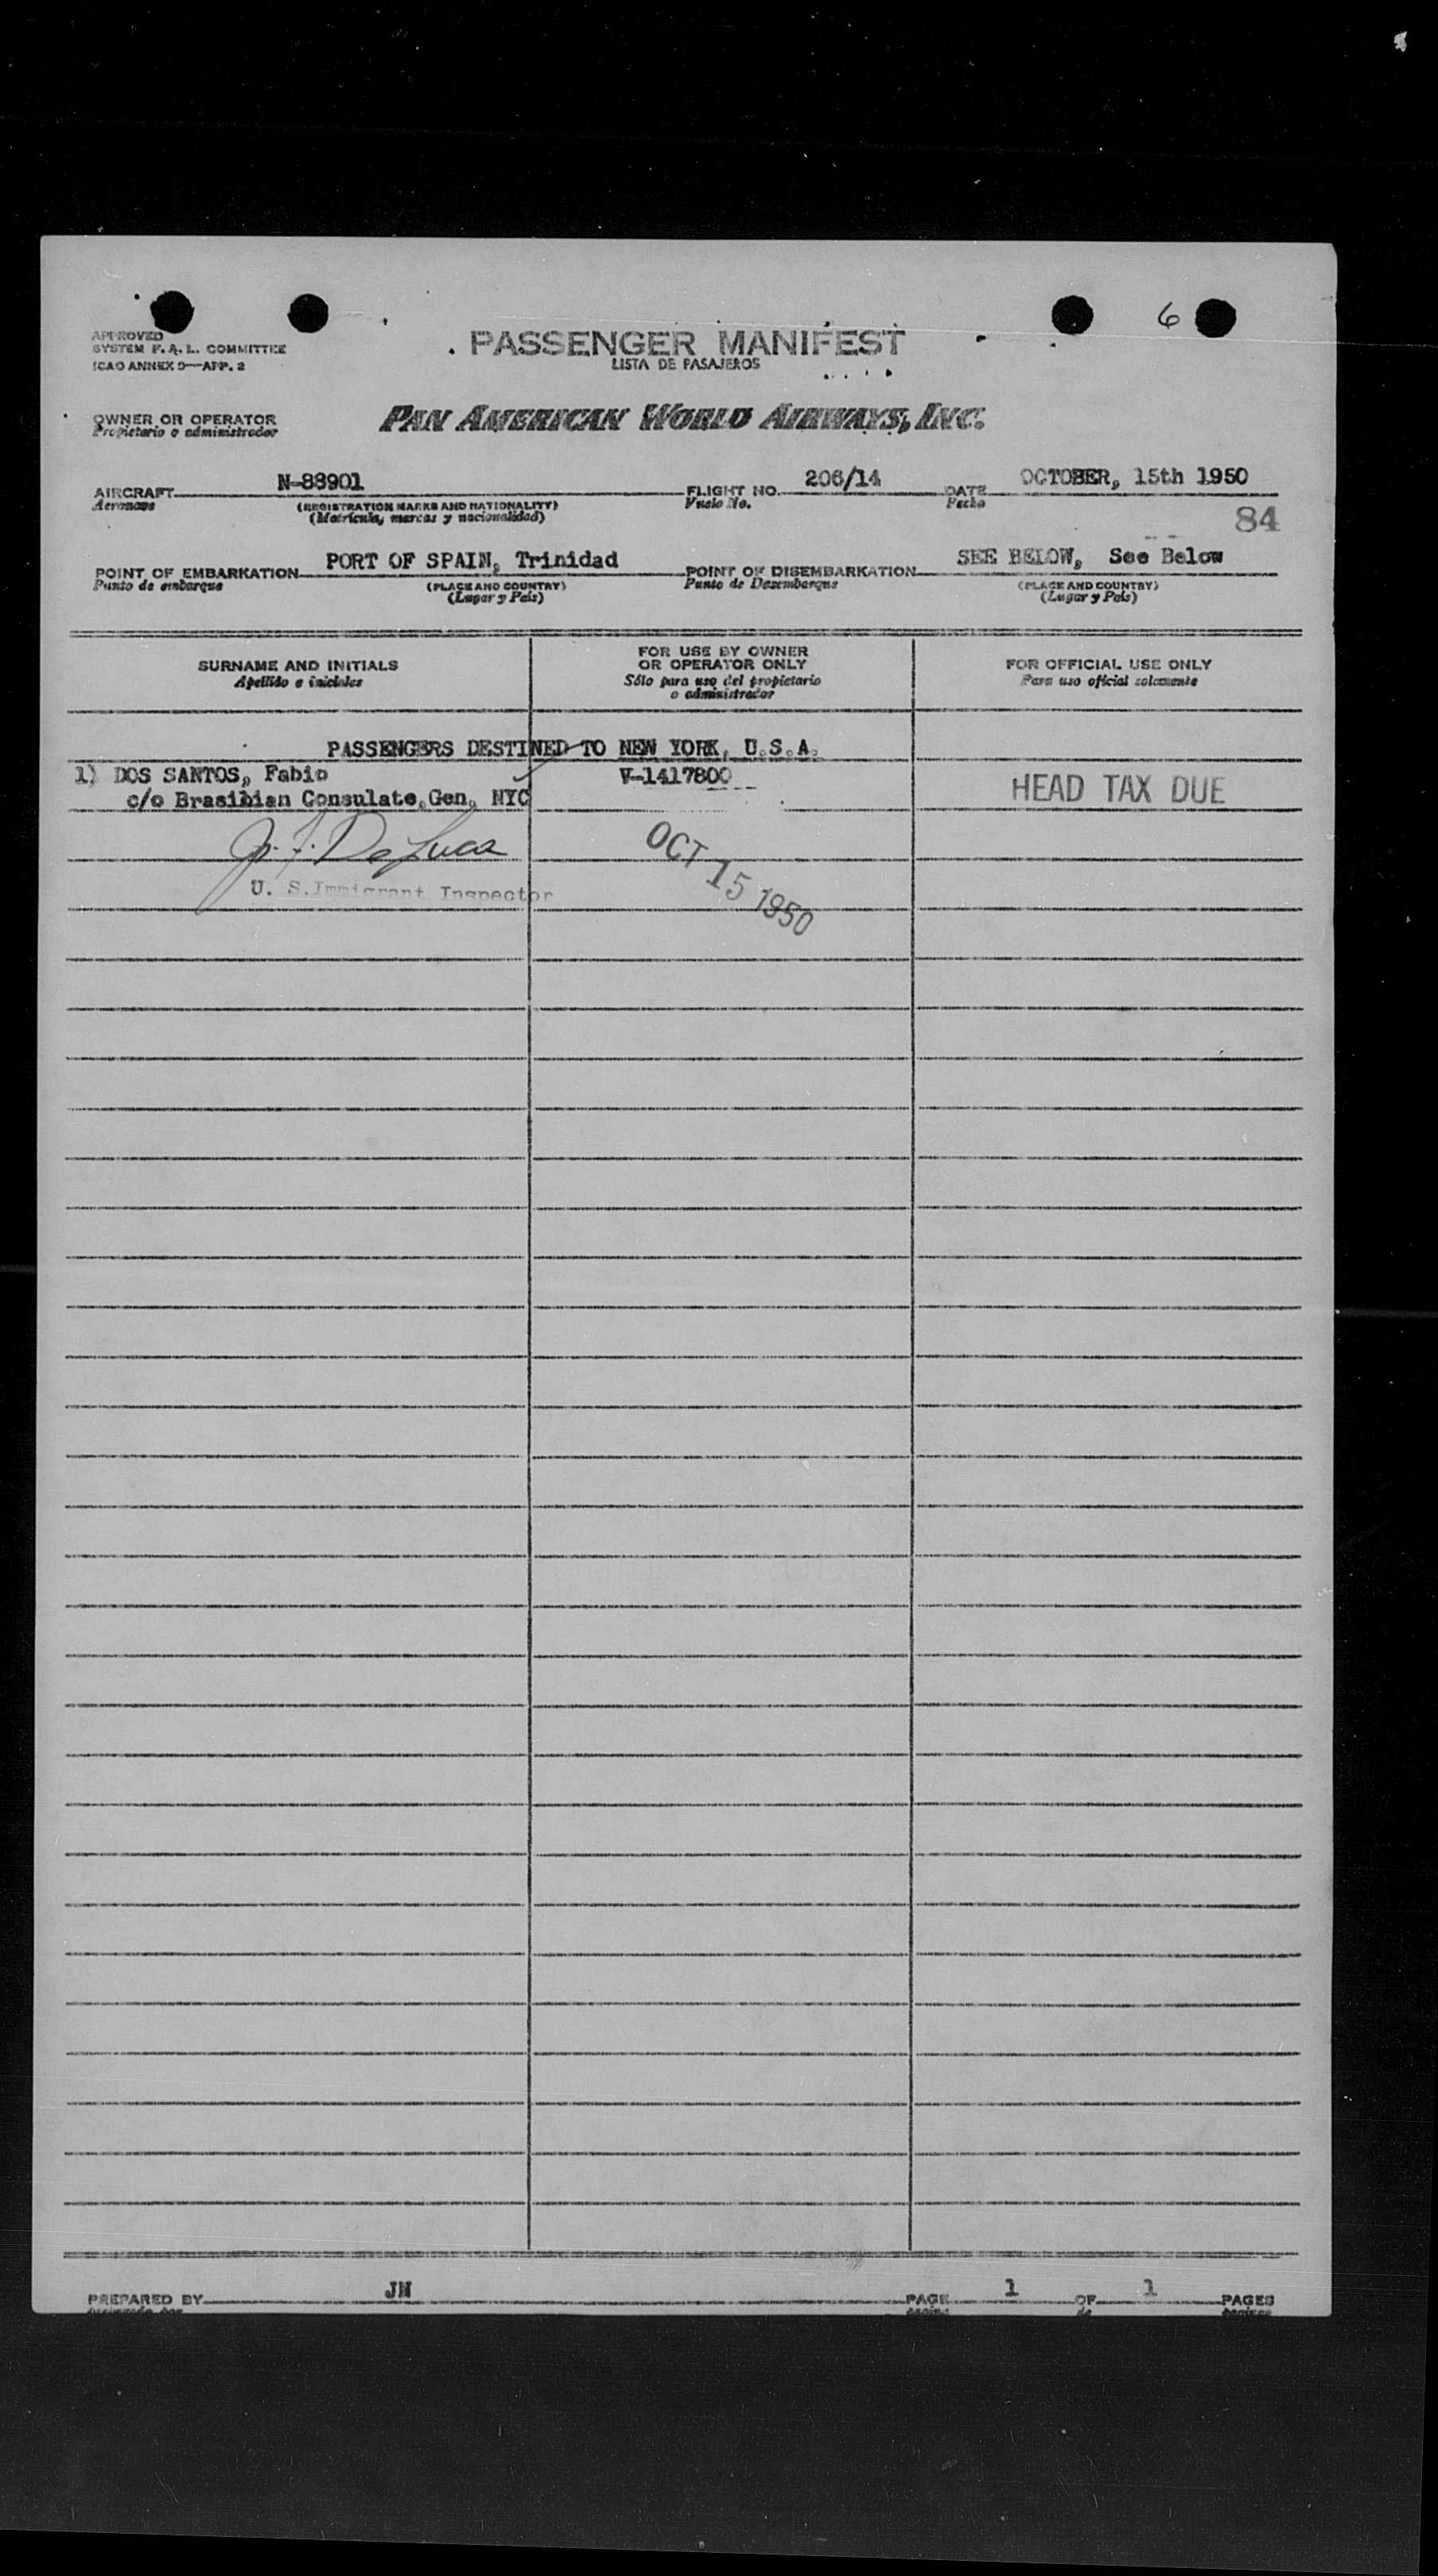 6
APPROVED
SYSTEM F. A. L. COMMITTEE
ICAO ANNEX 9—APP. 2
PASSENGER MANIFEST
LISTA DE PASAJEROS
OWNER OR OPERATOR
Propietario o administrador
PAN AMERICAN WORLD AIRWAYS, INC.
AIRCRAFT N-88901 FLIGHT NO. 206/14 DATE OCTOBER, 15th 1950
Aeronave (REGISTRATION MARKS AND NATIONALITY) Vuelo No. Fecha
(Matrícula, marcas y nacionalidad)
84
POINT OF EMBARKATION PORT OF SPAIN, Trinidad POINT OF DISEMBARKATION SEE BELOW, See Below
Punto de embarque (PLACE AND COUNTRY) Punto de Desembarque (PLACE AND COUNTRY)
(Lugar y País) (Lugar y País)
SURNAME AND INITIALS
Apellido e iniciales
FOR USE BY OWNER
OR OPERATOR ONLY
Sólo para uso del propietario
o administrador
FOR OFFICIAL USE ONLY
Para uso oficial solamente
PASSENGERS DESTINED TO NEW YORK, U.S.A.
1) DOS SANTOS, Fabio V-1417800
c/o Brasilian Consulate,Gen, NYC
HEAD TAX DUE
J. J. DeLuca
U. S.Immigrant Inspector
OCT 15 1950
PREPARED BY JN PAGE 1 OF 1 PAGES